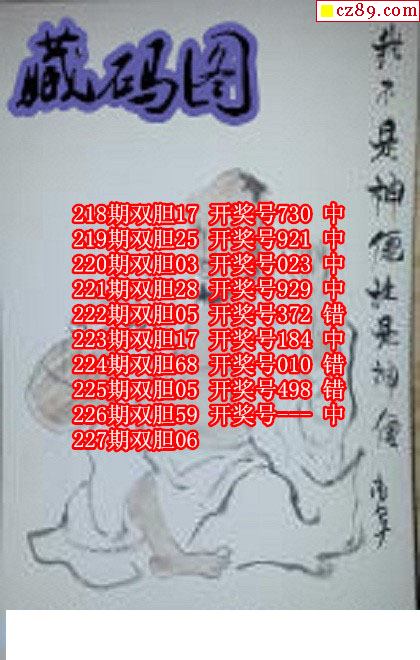 cz89.com
藏码图
我不是神
但也是神僊
218期双胆17 开奖号730 中
219期双胆25 开奖号921 中
220期双胆03 开奖号023 中
221期双胆28 开奖号929 中
222期双胆05 开奖号372 错
223期双胆17 开奖号184 中
224期双胆68 开奖号010 错
225期双胆05 开奖号498 错
226期双胆59 开奖号--- 中
227期双胆06